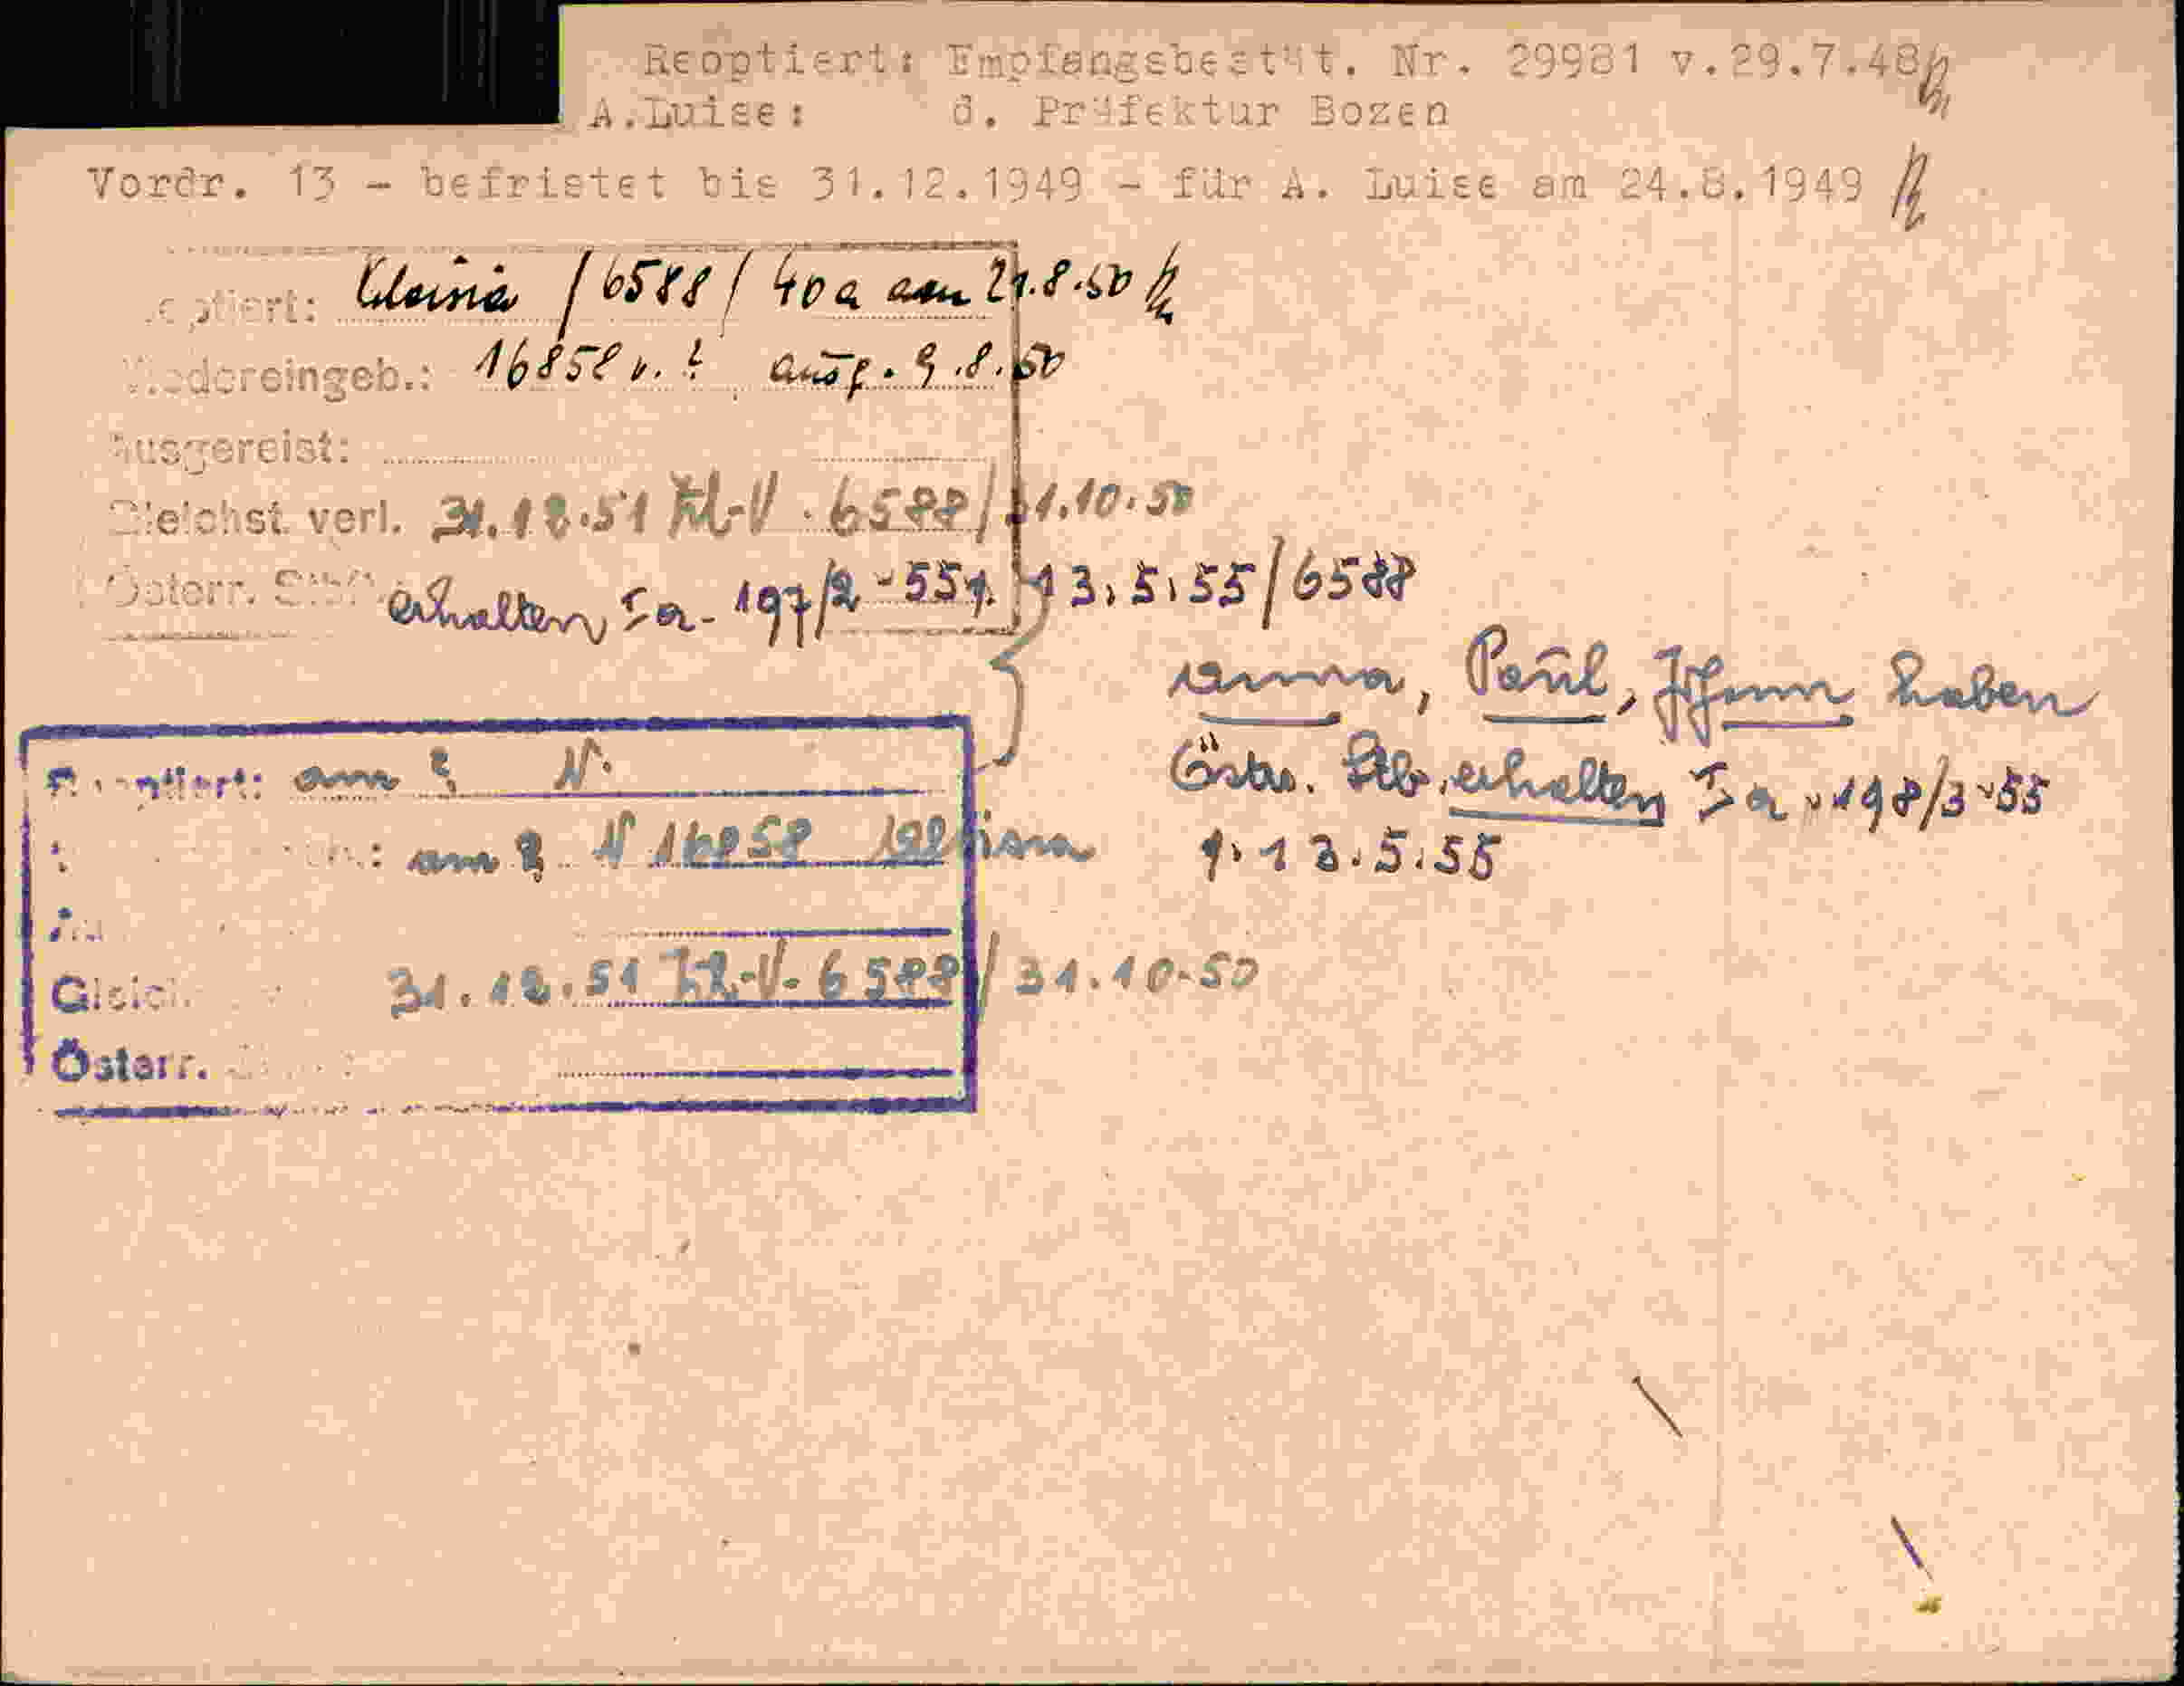 Reoptiert: Empfangsbestät. Nr. 29981 v.29.7.48
A.Luise: d. Präfektur Bozen
Vordr. 13 - befristet bis 31.12.1949 - für A. Luise am 24.8.1949
/ 6588 / 40a am 21.8.50
Wiedereingeb.: 16858 v. ? ausg. 9.8.50
Ausgereist:
Gleichst. verl. 31.12.51 V. 6588/31.10.50
Österr. StB. erhalten Ia- 197/2-55 v. 13.5.55/6588
Anna, Paul, Johann haben
Östr. Stb. erhalten Ia-198/3-55
v. 13.5.55
am ? N.
am ? N 16858
31.12.51 V. 6588 / 31.10.50
Österr.